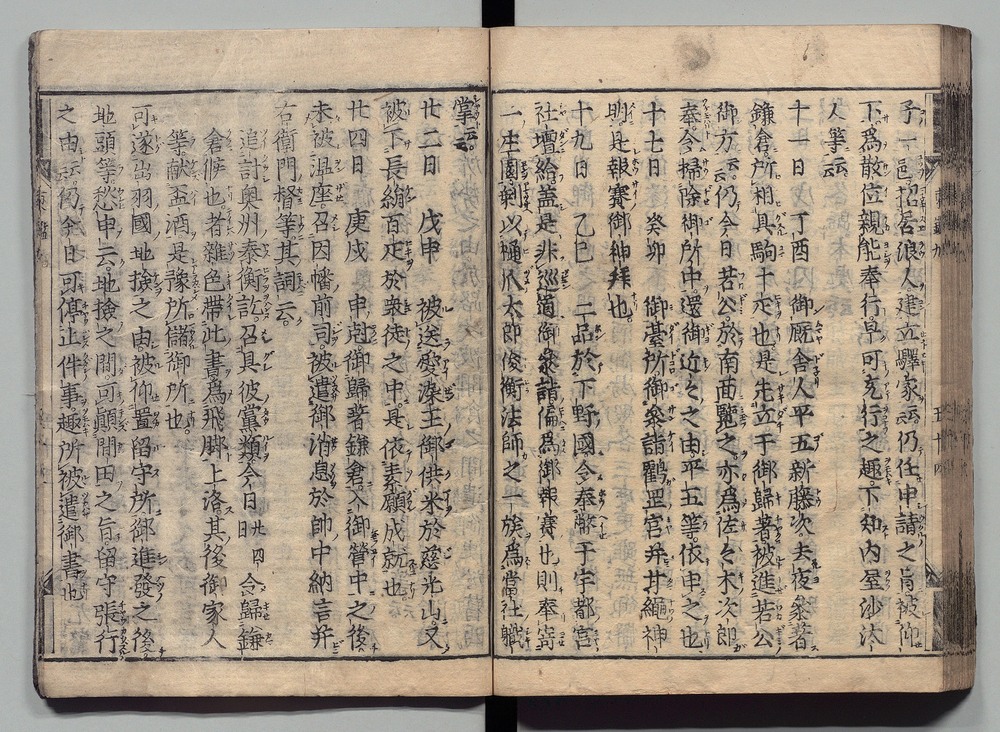 予一邑招居浪人建立驛家云云仍任申請之旨被仰
下爲散位親能奉行早可充行之趣下知内屋沙汰
人等云云
十一日 丁酉 御厩舍人平五新藤次去夜參著
鎌倉所相具駒十疋也是先立于御歸著被進若公
御方云云仍今日若公於南面覽之亦爲佐々木次郎
奉令掃除御所中還御近々之由平五等依申之也
十七日 癸卯 御臺所御參詣鶴岡宮并甘繩神
明是報賽御神拜也
十九日 乙巳 二品於下野國令奉幣于宇都宮
社壇給蓋是非巡道御參詣偏爲御報賽也則奉寄
一庄園剩以樋爪太郎俊衡法師之一族爲當社職
掌云云
廿二日 戊申 被送燈油王御供米於慈光山又
被下長絹百疋於衆徒之中是依素願成就也
廿四日 庚戌 申尅御歸著鎌倉入御營中之後
未被温座召因幡前司被遣御消息於帥中納言并
右衛門督等其詞云
追討奧州泰衡訖召具彼黨類今日廿四日令歸鎌
倉候也者雜色帶此書爲飛脚上洛其後御家人
等獻盃酒是豫所儲御所也
可遂出羽國地檢之由被仰置留守所御進發之後
地頭等愁申云地檢之間可顛間田之旨留守張行
之由云云仍今日可停止件事趣所被遣御書也
東鑑九
五十四